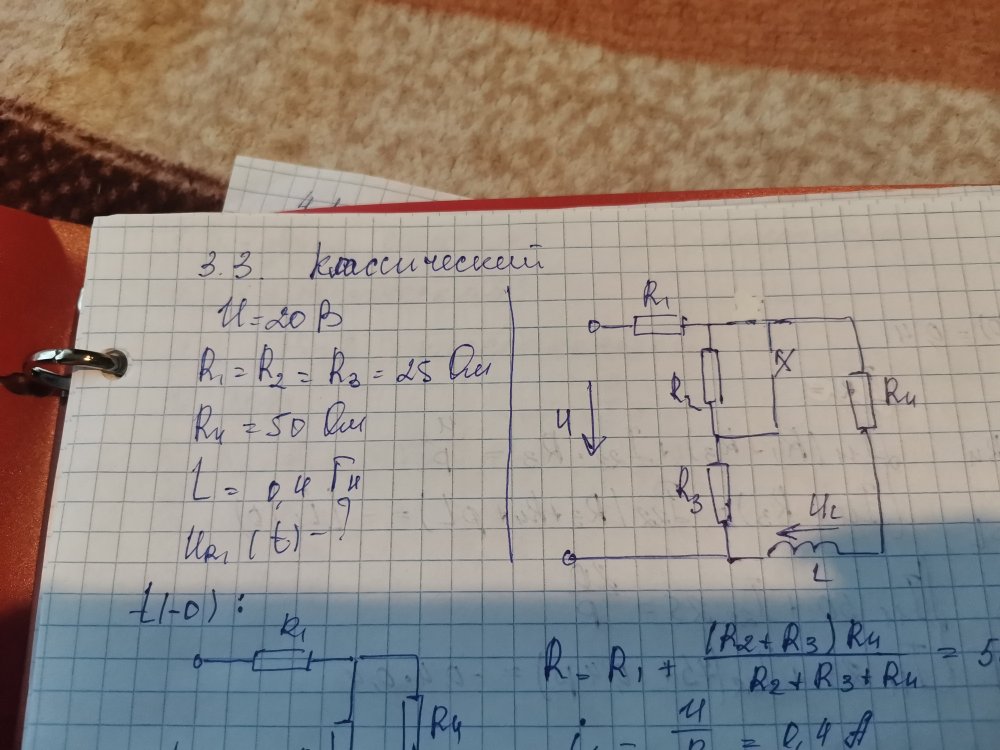 3.3. Классический
U = 20 В
R₁ = R₂ = R₃ = 25 Ом
R₄ = 50 Ом
L = 0,4 Гн
u_R₁ (t) - ?
R₁
R₂
R₄
U
R₃
U_L
L
t(-0) :
R₁
R₄
R = R₁ + (R₂ + R₃) R₄ / R₂ + R₃ + R₄ = 5
U / R = 0,4 А